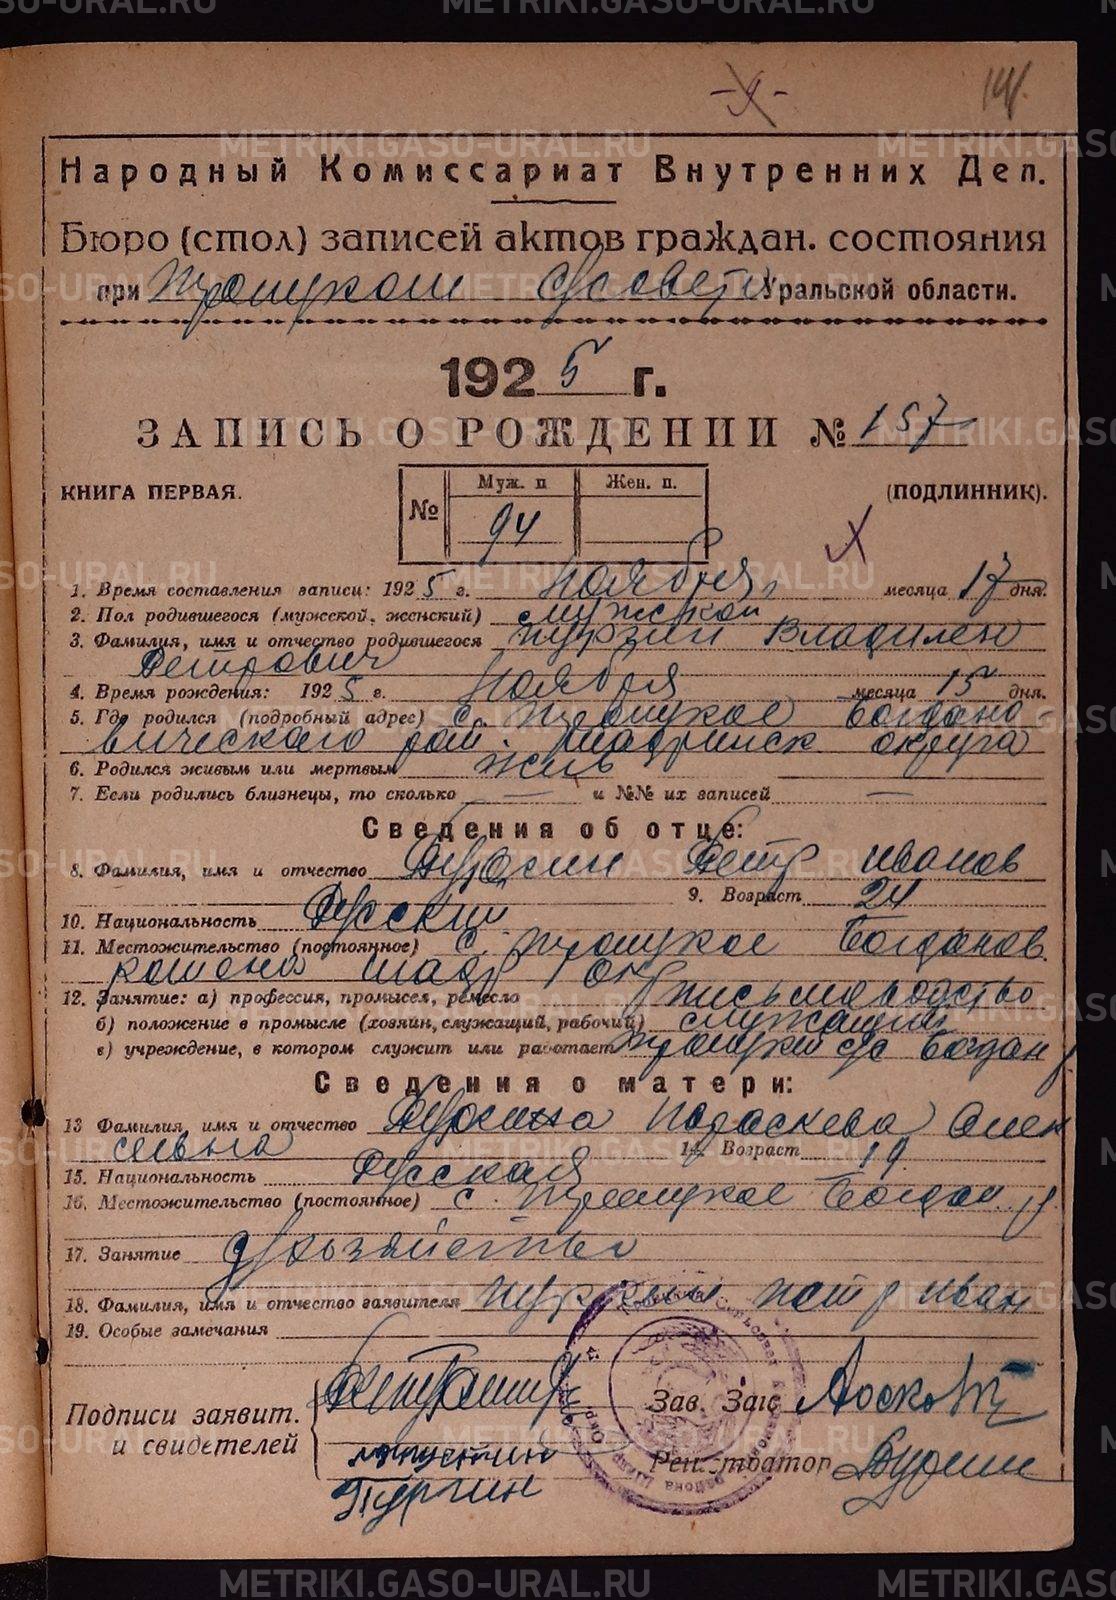 14.
Народный Комиссариат Внутренних Дел.
Бюро (стол) записей актов граждан. состояния
при Троицком с/совете Уральской области.
1925 г.
ЗАПИСЬ О РОЖДЕНИИ № 157
КНИГА ПЕРВАЯ.
(ПОДЛИННИК).
№ Муж. п Жен. п.
94
1. Время составления записи: 1925 г. Ноября месяца 17 дня.
2. Пол родившегося (мужской, женский) мужской
3. Фамилия, имя и отчество родившегося Пургин Владилен
Петрович
4. Время рождения: 1925 г. Ноября месяца 15 дня.
5. Где родился (подробный адрес) с. Троицкое Богдано-
вического рай. Шадринск округа
6. Родился живым или мертвым жив
7. Если родились близнецы, то сколько — и №№ их записей —
Сведения об отце:
8. Фамилия, имя и отчество Пургин Петр Иванов
9. Возраст 24
10. Национальность Русский
11. Местожительство (постоянное) с. Троицкое Богданов.
района Шадр Окр
12. Занятие: а) профессия, промысел, ремесло письмоводство
б) положение в промысле (хозяин, служащий, рабочий) служащий
в) учреждение, в котором служит или работает Троицкий с/с Богдан р.
Сведения о матери:
13 Фамилия, имя и отчество Пургина Параскева Алек
сеевна 14. Возраст 19.
15. Национальность Русская
16. Местожительство (постоянное) с. Троицкое Богдан. р.
17. Занятие д/хозяйство
18. Фамилия, имя и отчество заявителя Пургин Петр Иван
19. Особые замечания
Подписи заявит.
и свидетелей
Зав. Загс
Регистратор
Пургин
METRIKI.GASO-URAL.RU